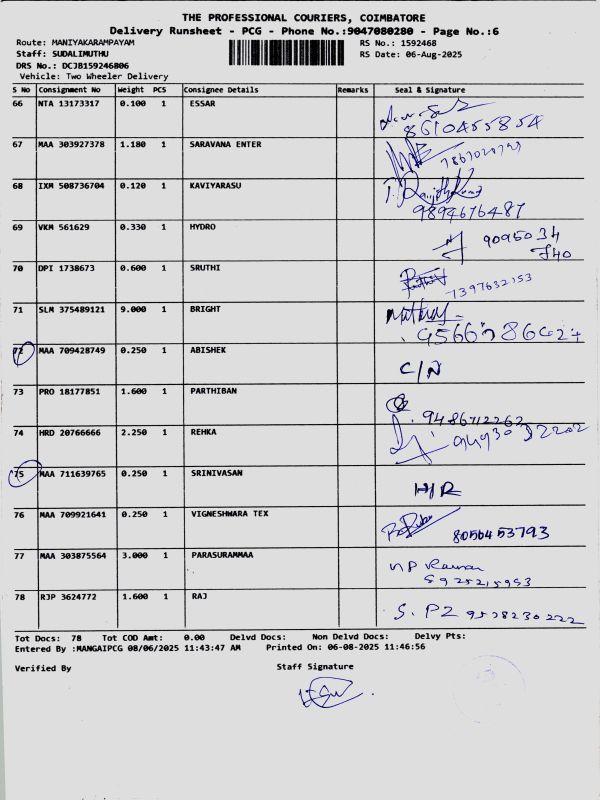 THE PROFESSIONAL COURIERS, COIMBATORE
Delivery Runsheet - PCG - Phone No.:9047080280 - Page No.:6
Route: MANIYAKARAMPAYAM RS No.: 1592468
Staff: SUDALIMUTHU RS Date: 06-Aug-2025
DRS No.: DCJB159246806
Vehicle: Two Wheeler Delivery
S No Consignment No Weight PCS Consignee Details Remarks Seal & Signature
66 NTA 13173317 0.100 1 ESSAR
8610455854
67 MAA 303927378 1.180 1 SARAVANA ENTER
68 IXM 508736704 0.120 1 KAVIYARASU
9894676487
69 VKM 561629 0.330 1 HYDRO
9095034
740
70 DPI 1738673 0.600 1 SRUTHI
7397632153
71 SLM 375489121 9.000 1 BRIGHT
72 MAA 709428749 0.250 1 ABISHEK
C/N
73 PRO 18177851 1.600 1 PARTHIBAN
9486712262
74 HRD 20766666 2.250 1 REHKA
75 MAA 711639765 0.250 1 SRINIVASAN
H/R
76 MAA 709921641 0.250 1 VIGNESHWARA TEX
8056453793
77 MAA 303875564 3.000 1 PARASURAMMAA
78 RJP 3624772 1.600 1 RAJ
9528230222
Tot Docs: 78 Tot COD Amt: 0.00 Delvd Docs: Non Delvd Docs: Delvy Pts:
Entered By :MANGAIPCG 08/06/2025 11:43:47 AM Printed On: 06-08-2025 11:46:56
Verified By Staff Signature